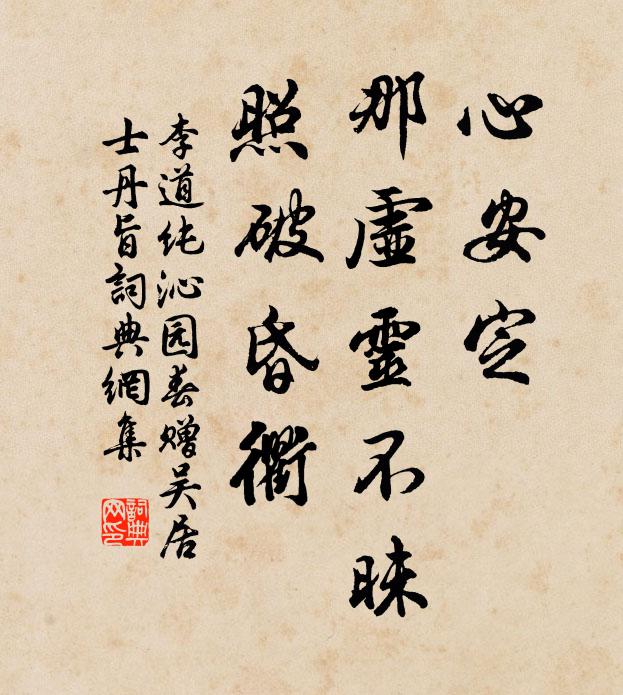 心安定
那虛靈不昧
照破昏衢
李道纯沁园春赠吴居
士丹旨詞典網集
詞典
网印